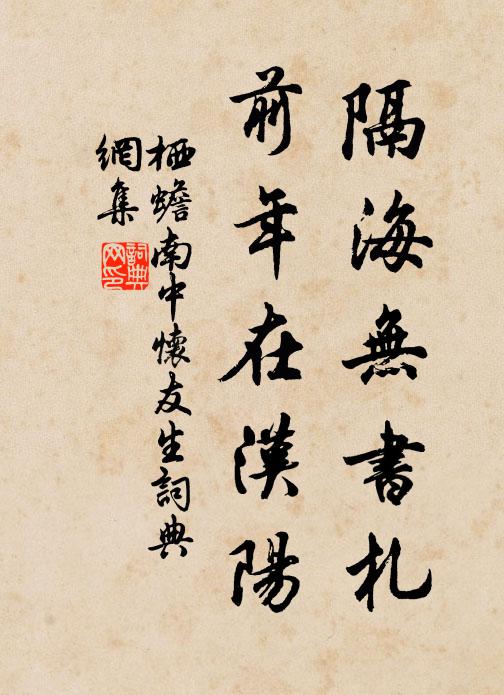 隔海無書札
前年在漢陽
栖蟾南中懷友生詞典
網集
詞典
网印